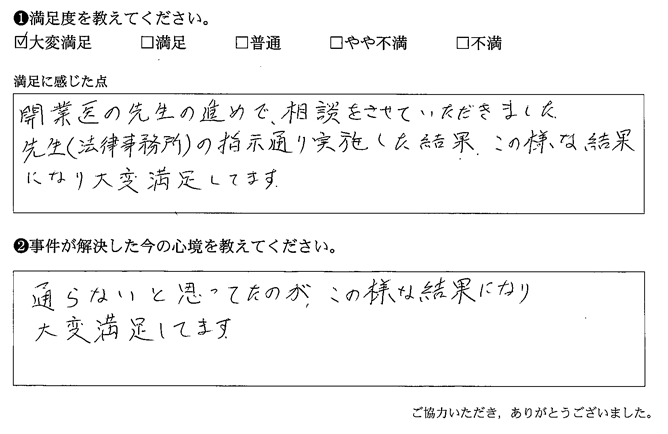 ❶満足度を教えてください。
☑大変満足 □満足 □普通 □やや不満 □不満
満足に感じた点
開業医の先生の進めで、相談をさせていただきました
先生(法律事務所)の指示通り実施した結果、この様な結果
になり大変満足してます
❷事件が解決した今の心境を教えてください。
通らないと思ってたのが、この様な結果になり
大変満足してます
ご協力いただき，ありがとうございました。